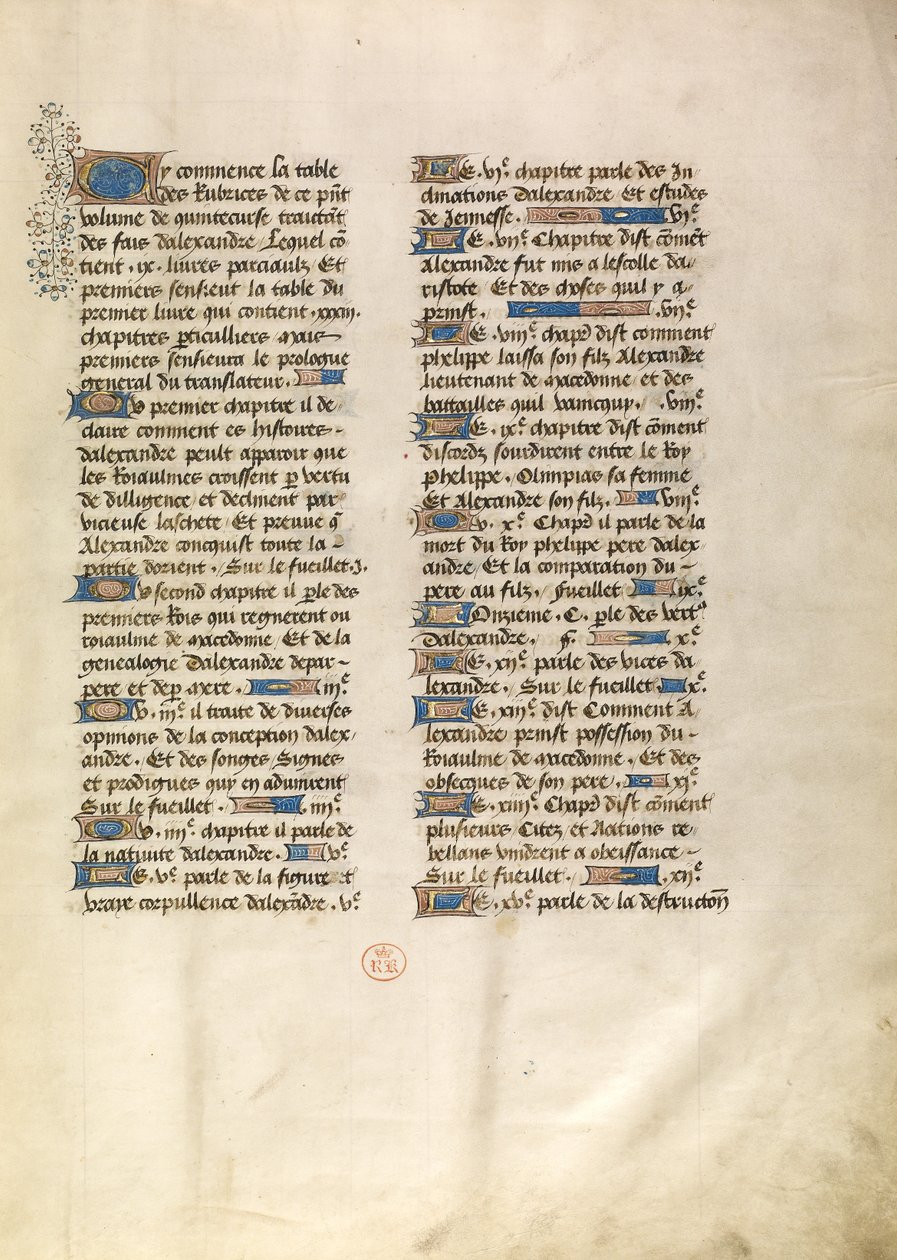 Cy commence la table
des Rubrices de ce pn̄t
volume de quintecurse traictāt
des fais dalexandre / Lequel cō
tient .ix. liures parciaulx / Et
premiers sensieut la table du
premier liure qui contient .xxxiii.
chapitres p̄ticulliers / Mais
premiers sensieura le prologue
general du translateur.
Ou premier chapitre il de-
claire comment es histoires
dalexandre peult apparoir que
les Roiaulmes croissent p̄ vertu
de dilligence / et declinent par
vicieuse laschete / Et preuue q̄
Alexandre concquist toute la
partie dorient . / Sur le fueillet .j.
Ou second chapitre il p̄le des
premiers Rois qui regnerent ou
roiaulme de macedonne / Et de la
genealogie Dalexandre de par
pere et de p̄ mere . iiiᵉ
Ou .iiiᵉ il traite de diuerses
opinions de la conception dalex-
andre / . Et des songes / Signes
et prodigues quy en aduinrent
Sur le fueillet . . iiiiᵉ
Ou . iiiiᵉ. chapitre il parle de
la natiuite dalexandre . vᵉ.
LE. vᵉ. parle de la figure et
vraye corpullence dalexādre . vᵉ.
LE. viᵉ. chapitre parle des In-
clinations Dalexandre / Et estudes
de Jennesse . viᵉ.
LE . viiᵉ. Chapitre dist cōmēt
Alexandre fut mis a lescolle da-
ristote / Et des choses quil y a-
prinst . . viiᵉ.
LE . viiiᵉ. chapr̄e dist comment
phelippe laissa son filz Alexandre
lieutenant de macedonne / et des
battailles quil vaincquy . . viiiᵉ.
LE . ixᵉ. chapitre dist cōment
discordz sourdirent entre le Roy
Phelippe . Olimpias sa femme
Et Alexandre son filz . viiiᵉ.
Ou . xᵉ. Chapr̄e il parle de la
mort du Roy phelippe pere dalex-
andre / Et la comparation du
pere au filz . / Fueillet ixᵉ.
LE Onzieme . C. p̄le des vert⁹
Dalexandre . f. xᵉ.
LE. xiiᵉ. parle des vices da-
lexandre . / Sur le fueillet . xᵉ.
LE. xiiiᵉ. dist Comment A-
lexandre prinst possession du
Roiaulme de macedonne . / Et des
obsecques de son pere . xiᵉ.
LE . xiiiiᵉ. Chapr̄e dist cōment
plusieurs Citez et Nations re-
bellans vindrent a obeissance
Sur le fueillet . . xiiᵉ.
LE . xvᵉ. parle de la destructōn
RK